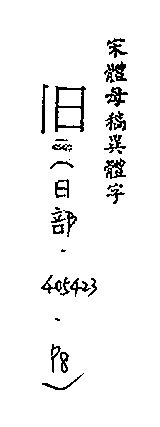 宋體母稿異體字
旧
(日部.405423.P8)